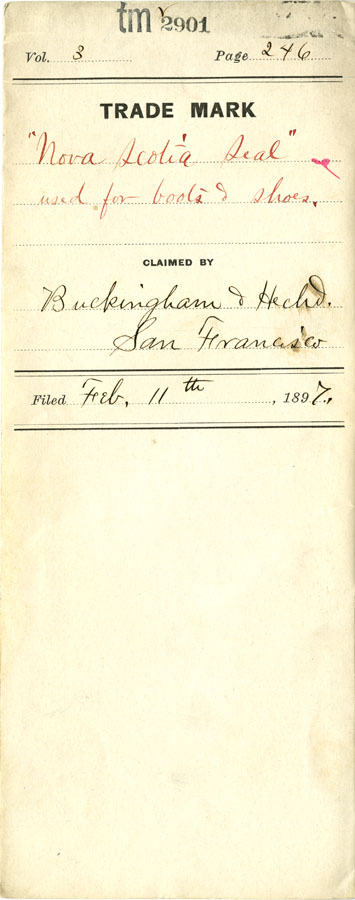 tm 2901
Vol. 3 Page 246
TRADE MARK
"Nova Scotia Seal"
used for boots & shoes.
CLAIMED BY
Buckingham & Hecht.
San Francisco
Filed Feb. 11th, 1897.